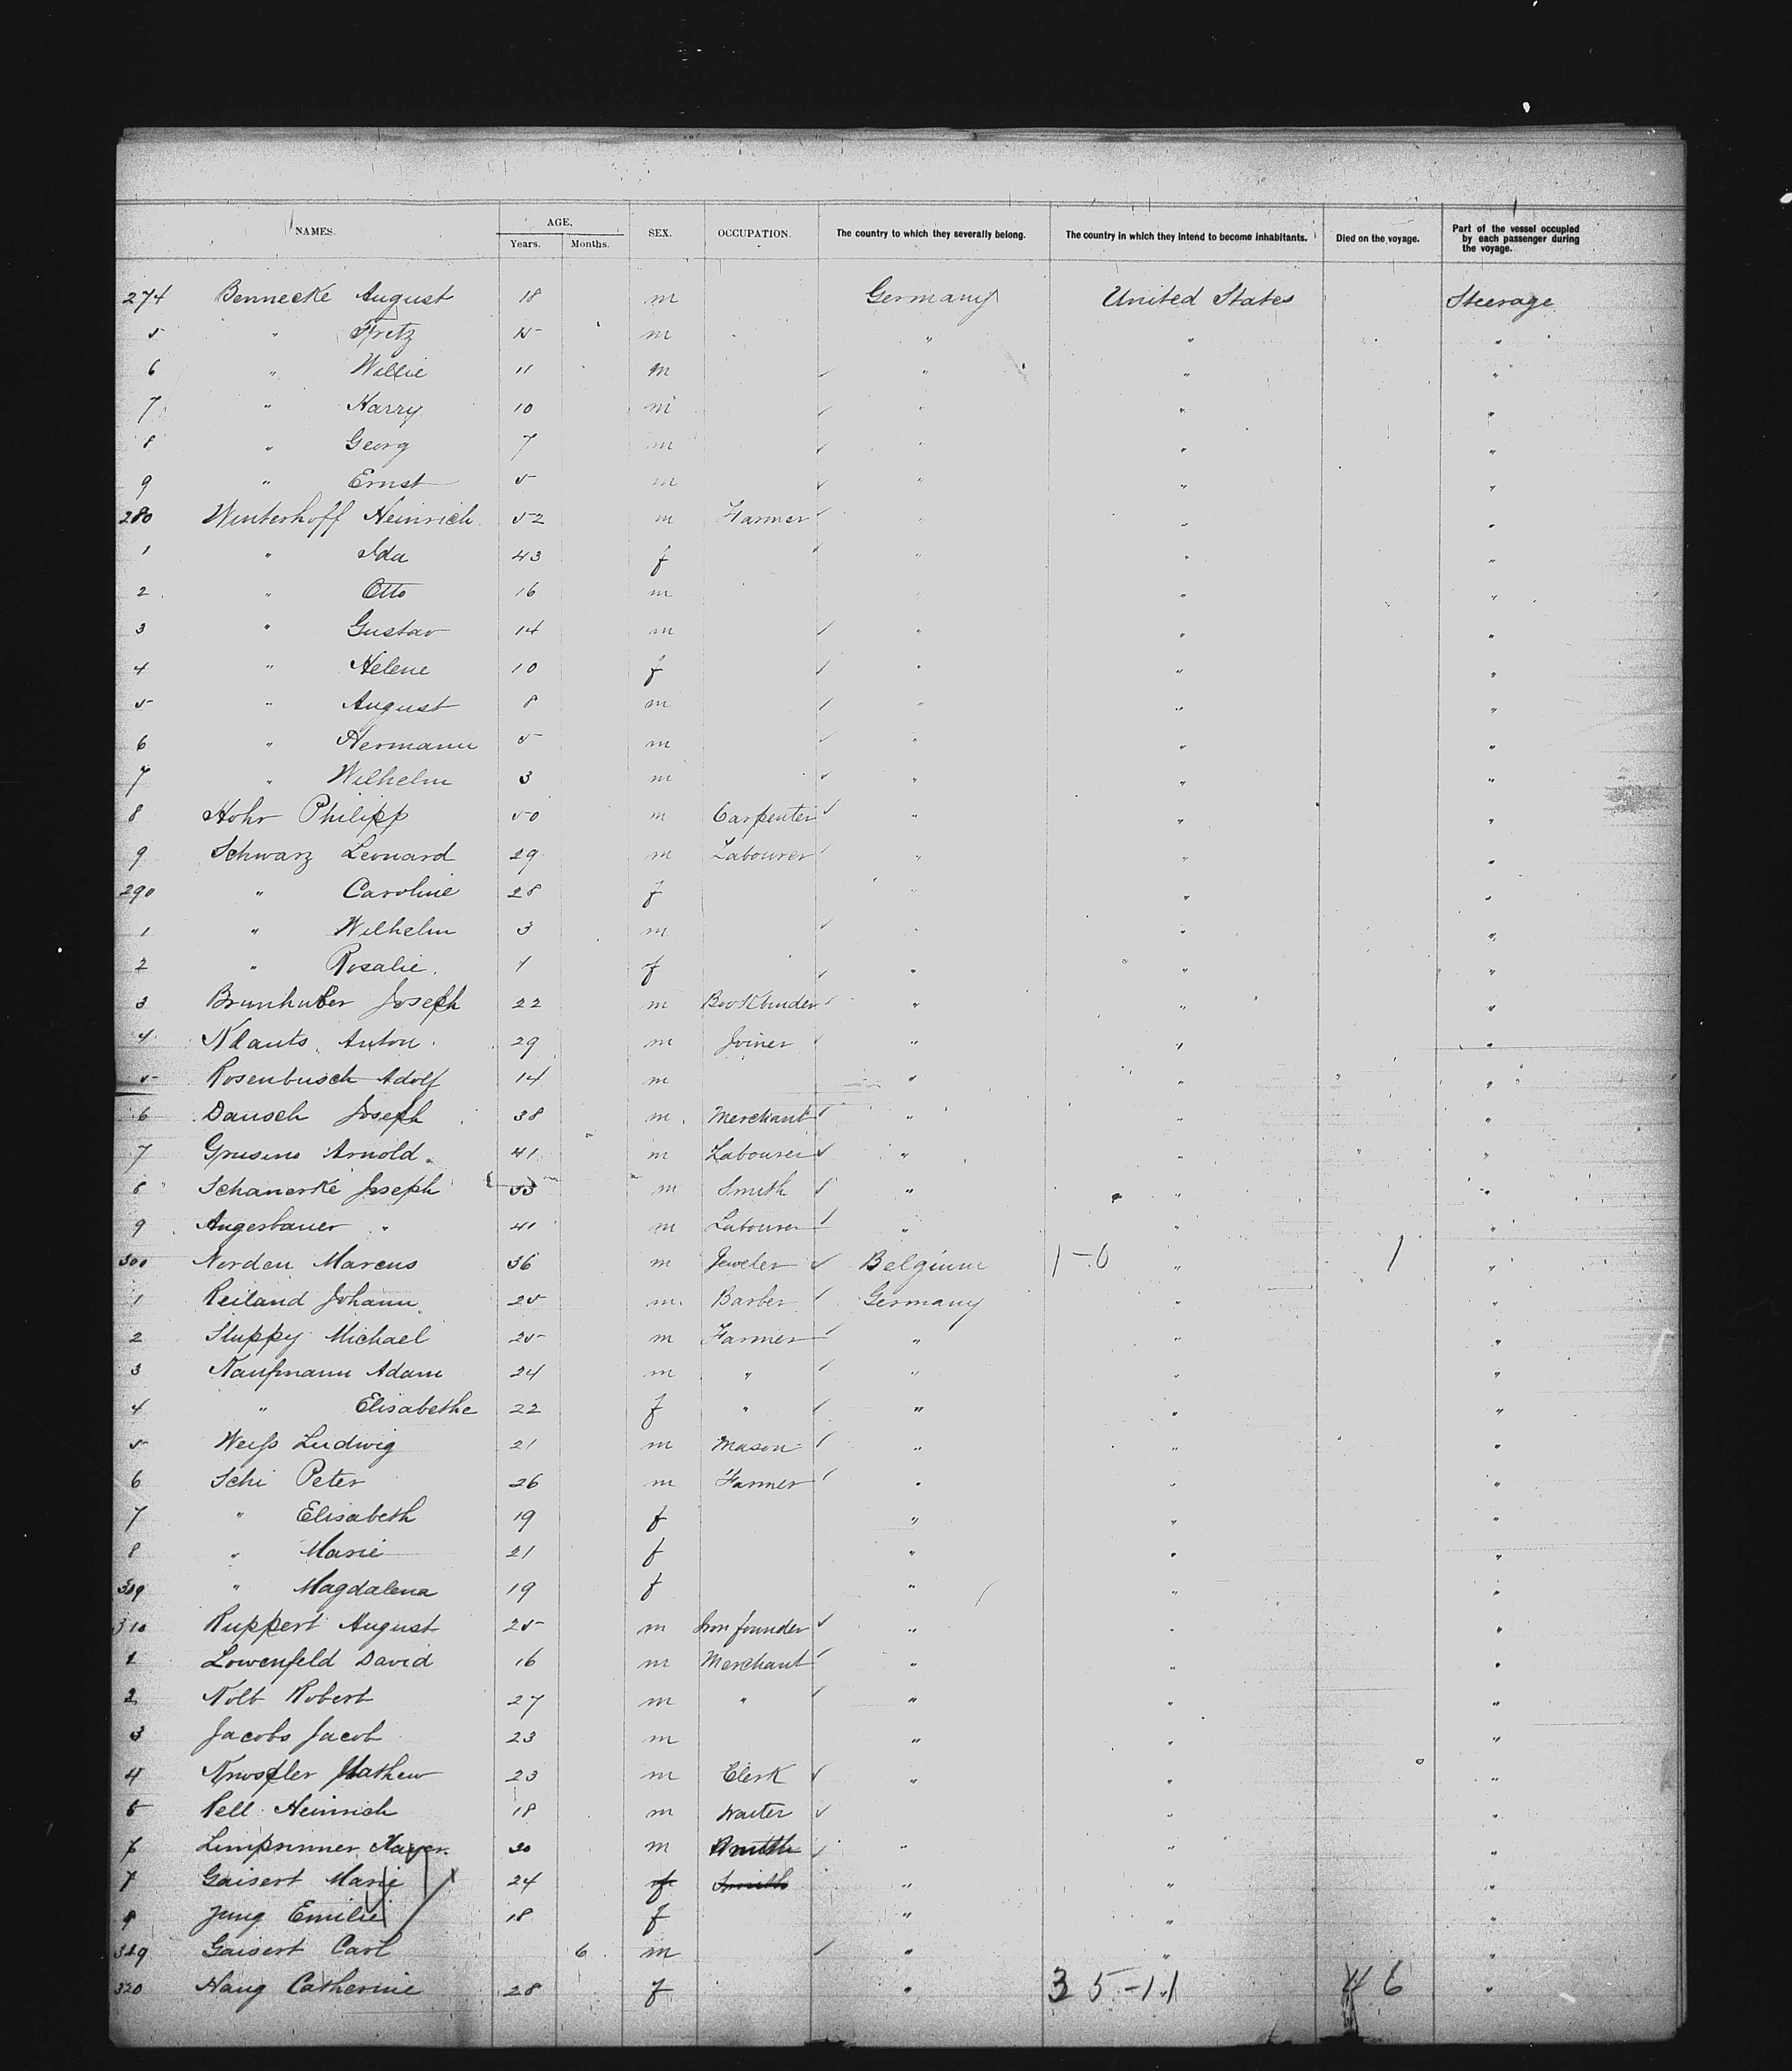 NAMES. AGE. Years. Months. SEX. OCCUPATION. The country to which they severally belong. The country in which they intend to become inhabitants. Died on the voyage. Part of the vessel occupied by each passenger during the voyage.
274 Bennecke August 18 m Germany United States Steerage
5 " Fritz 15 m " " "
6 " Willie 11 m " " "
7 " Harry 10 m " " "
8 " Georg 7 m " " "
9 " Ernst 5 m " " "
280 Winterhoff Heinrich 52 m Farmer " " "
1 " Ida 43 f " " "
2 " Otto 16 m " " "
3 " Gustav 14 m " " "
4 " Helene 10 f " " "
5 " August 8 m " " "
6 " Hermann 5 m " " "
7 " Wilhelm 3 m " " "
8 Hohr Philipp 50 m Carpenter " " "
9 Schwarz Leonard 29 m Labourer " " "
290 " Caroline 28 f " " "
1 " Wilhelm 3 m " " "
2 " Rosalie 1 f " " "
3 Brunhuber Joseph 22 m Bookbinder " " "
4 Klauts Anton 29 m Joiner " " "
5 Rosenbusch Adolf 14 m " " "
6 Dausch Joseph 38 m Merchant " " "
7 Arnold 41 m Labourer " " "
8 Joseph 33 m Smith " " "
9 Augesbauer " 41 m Labourer " " "
300 Norden Marcus 36 m Jeweler Belgium 1-0 " 1 "
1 Reiland Johann 25 m Barber Germany " "
2 Stuppy Michael 25 m Farmer " " "
3 Kaufmann Adam 24 m " " " "
4 " Elisabethe 22 f " " " "
5 Weiß Ludwig 21 m Mason " " "
6 Schi Peter 26 m Farmer " " "
7 " Elisabeth 19 f " " "
8 " Marie 21 f " " "
309 " Magdalena 19 f " " "
310 Ruppert August 25 m Iron founder " " "
1 Lowenfeld David 16 m Merchant " " "
2 Kolb Robert 27 m " " " "
3 Jacobs Jacob 23 m " " "
4 Knospler Mathew 23 m Clerk " " "
5 Pell Heinrich 18 m Waiter " "
6 30 m Smith " " "
7 Gaisert Marie 24 f Smith " " "
8 Jung Emilie 18 f " " "
319 Gaisert Carl 6 m " " "
320 Haug Catherine 28 f " 35-11 " 46 "